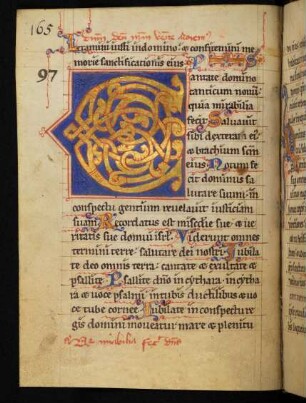 165
Letamini iusti in domino: & confitemini me
morie sanctificationis eius
97
Cantate domino
canticum nouū:
quia mirabilia
fecit. Saluauit
sibi dextera ei:
& brachium scm̄
eius. Notum fe
cit dominus sa
lutare suum: in
conspectu gentium reuelauit iusticiam
suam. Recordatus est mis̄die sue: & ue
ritatis sue domui isrl̄. Viderunt omnes
termini terre: salutare dei nostri. Iubila
te deo omnis terra: cantate & exultate &
psallite. Psallite dnō in cythara in cythara
& uoce psalmi: in tubis ductilibus & uo
ce tube cornee. Iubilate in conspectu re
gis domini: moueatur mare & plenitu
mirabilia fec̄ dn̄s